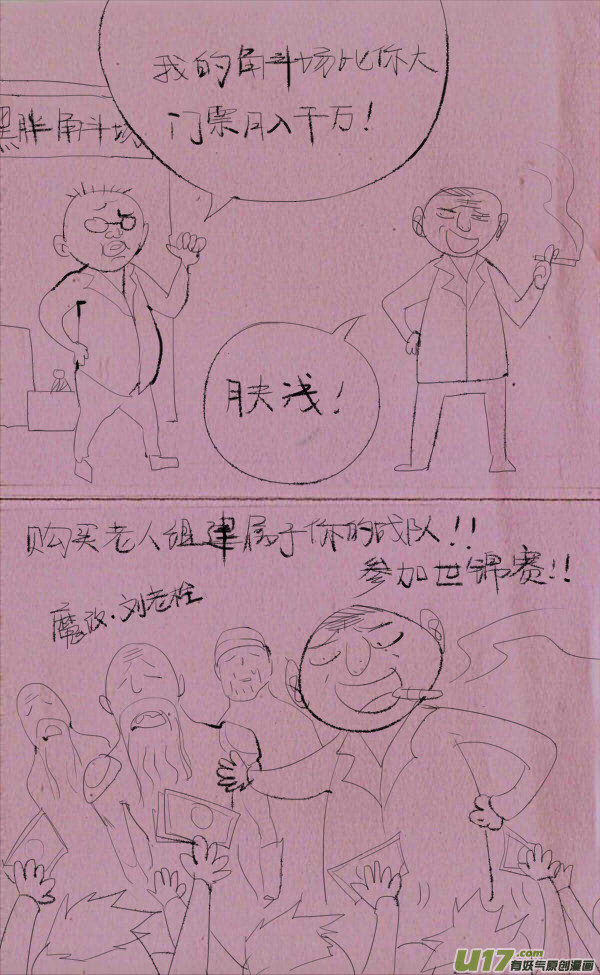 我的角斗场比你大
门票月入千万!
黑胖角斗场
肤浅!
购买老人组建属于你的战队!!
参加世锦赛!!
魔改·刘老栓
U17.com
有妖气原创漫画